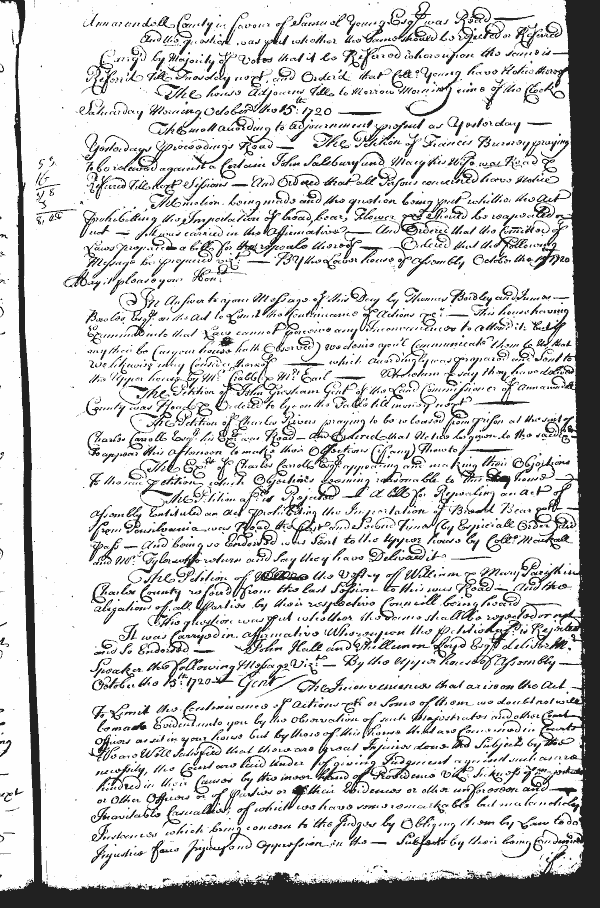 Annarundell County in favour of Samuel Young Esqr was Read
And the question was put whether the same should be rejected or Referred
Carryed by Majority of Votes that it be Referred whereupon the same is
Referrd till Tuesday next, and Orderd that Collo Young have Notice thereof
The house adjourns till to Morrow Morning nine of the Clock
Saturday Morning October the 15th 1720
The met according to adjournment present as Yesterday
Yesterdays Proceedings Read — The Petition of Francis praying
to be releived against a Certain John Salsbury and Mary his Wife was Read &
referred till next Sessions — And Ordered that all Persons concerned have Notice
The motion being made and the question being put whither the Act
Prohibitting the Importation of bread, bear, Flower, should be repealed or
not — It was carried in the Affirmative — And Ordered that the Committee of
Laws prepare a bill for the repeale thereof — Ordered that the following
Message be prepared viz — By the Lower house of Assembly October the 15th 1720
May it please your Honrs
In Answer to your Message of this Day by Thomas Bordley and James
Esqrs on the Act to Limit the Continuance of Actions — This house having
Examined into that Law cannot perceive any Inconveniences to attend it; but if
any there be (as your house hath Observed) we desire you'l Communicate them to Us that
we likewise may Consider thereof — which accordingly was prepared and Sent to
the upper house by Mr Crabb & Mr Earl — return & say they have delivered
The Petition of John Gresham Gent of the Land Commissioner of Annarundell
County was Read & Ordered to lye on the Table till monday next
The Petition of Charles praying to be released from Prison at the suit of
Charles Carroll Esqr his was Read — and Ordered that Notice be given to the said
to appear this Afternoon to make their Objections (if any) thereto
The of Charles Carroll Esqr appearing and making their Objections
to the said petition, which Objections seeming reasonable to this house
The Petition afd is Rejected — A bill for Repealing an Act of
Assembly Entituled an Act Prohibiting the Importation of Bread Bear
from Pensilvania was Read the first and Second time (by Especiall Order) did
pass — And being so Endorsed was sent to the Upper house by Collo Mackall
and Mr Tyler return and say they have Deliverd it
The Petition of the Vestry of William & Mary Parish in
Charles County referred from the last Session to this was Read — And the
alligations of all Parties by their respective Councill being heard
The question was put whether the same shall be rejected or not
It was Carryed in affirmative Whereupon the Petition afd is Rejected
and so Endorsed — John Hall and Philemon Loyd Esqrs deliver Mr
Speaker the following Message Vizt — By the Upper house of Assembly
October the 15th 1720 — Gent The Inconveniences that arise on the Act
To Limit the Continuance of Actions &c or some of them we doubt not will
be made Evident to you by the Observation of such Magistrates and other Court
Officers as sit in your house but by those of this house that are Concerned in Courts
We are Well Satisfied that there are great Injuries done the Subject by the
necessity, the Courts are laid under of giving Judgment against such as are
hindred in their Causes by the hand of Providence
or Other Officers or of Parties or of their Evidences or other unforeseen and
Inevitable Casualties, of which we have some remarkable but melancholy
Instances which bring concern to the Judges by Obliging them by Law to do
Injustice and oppression in the — Subjects by their being Condemned
if